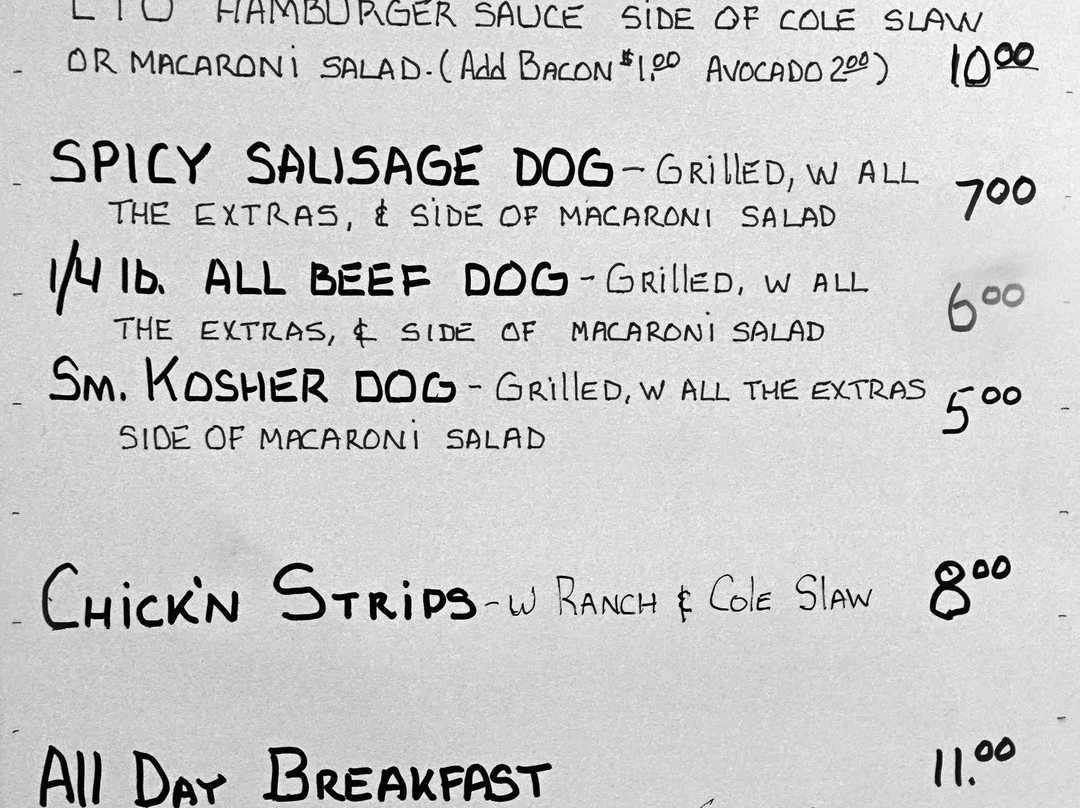 LTO HAMBURGER SAUCE SIDE OF COLE SLAW
OR MACARONI SALAD. (Add BACON $1.00 AVOCADO 2.00) 10.00
SPICY SAUSAGE DOG - GRILLED, W ALL
THE EXTRAS, & SIDE OF MACARONI SALAD 7.00
1/4 lb. ALL BEEF DOG - GRILLED, W ALL
THE EXTRAS, & SIDE OF MACARONI SALAD 6.00
SM. KOSHER DOG - GRILLED, W ALL THE EXTRAS 5.00
SIDE OF MACARONI SALAD
CHICK'N STRIPS - W RANCH & COLE SLAW 8.00
All DAY BREAKFAST 11.00